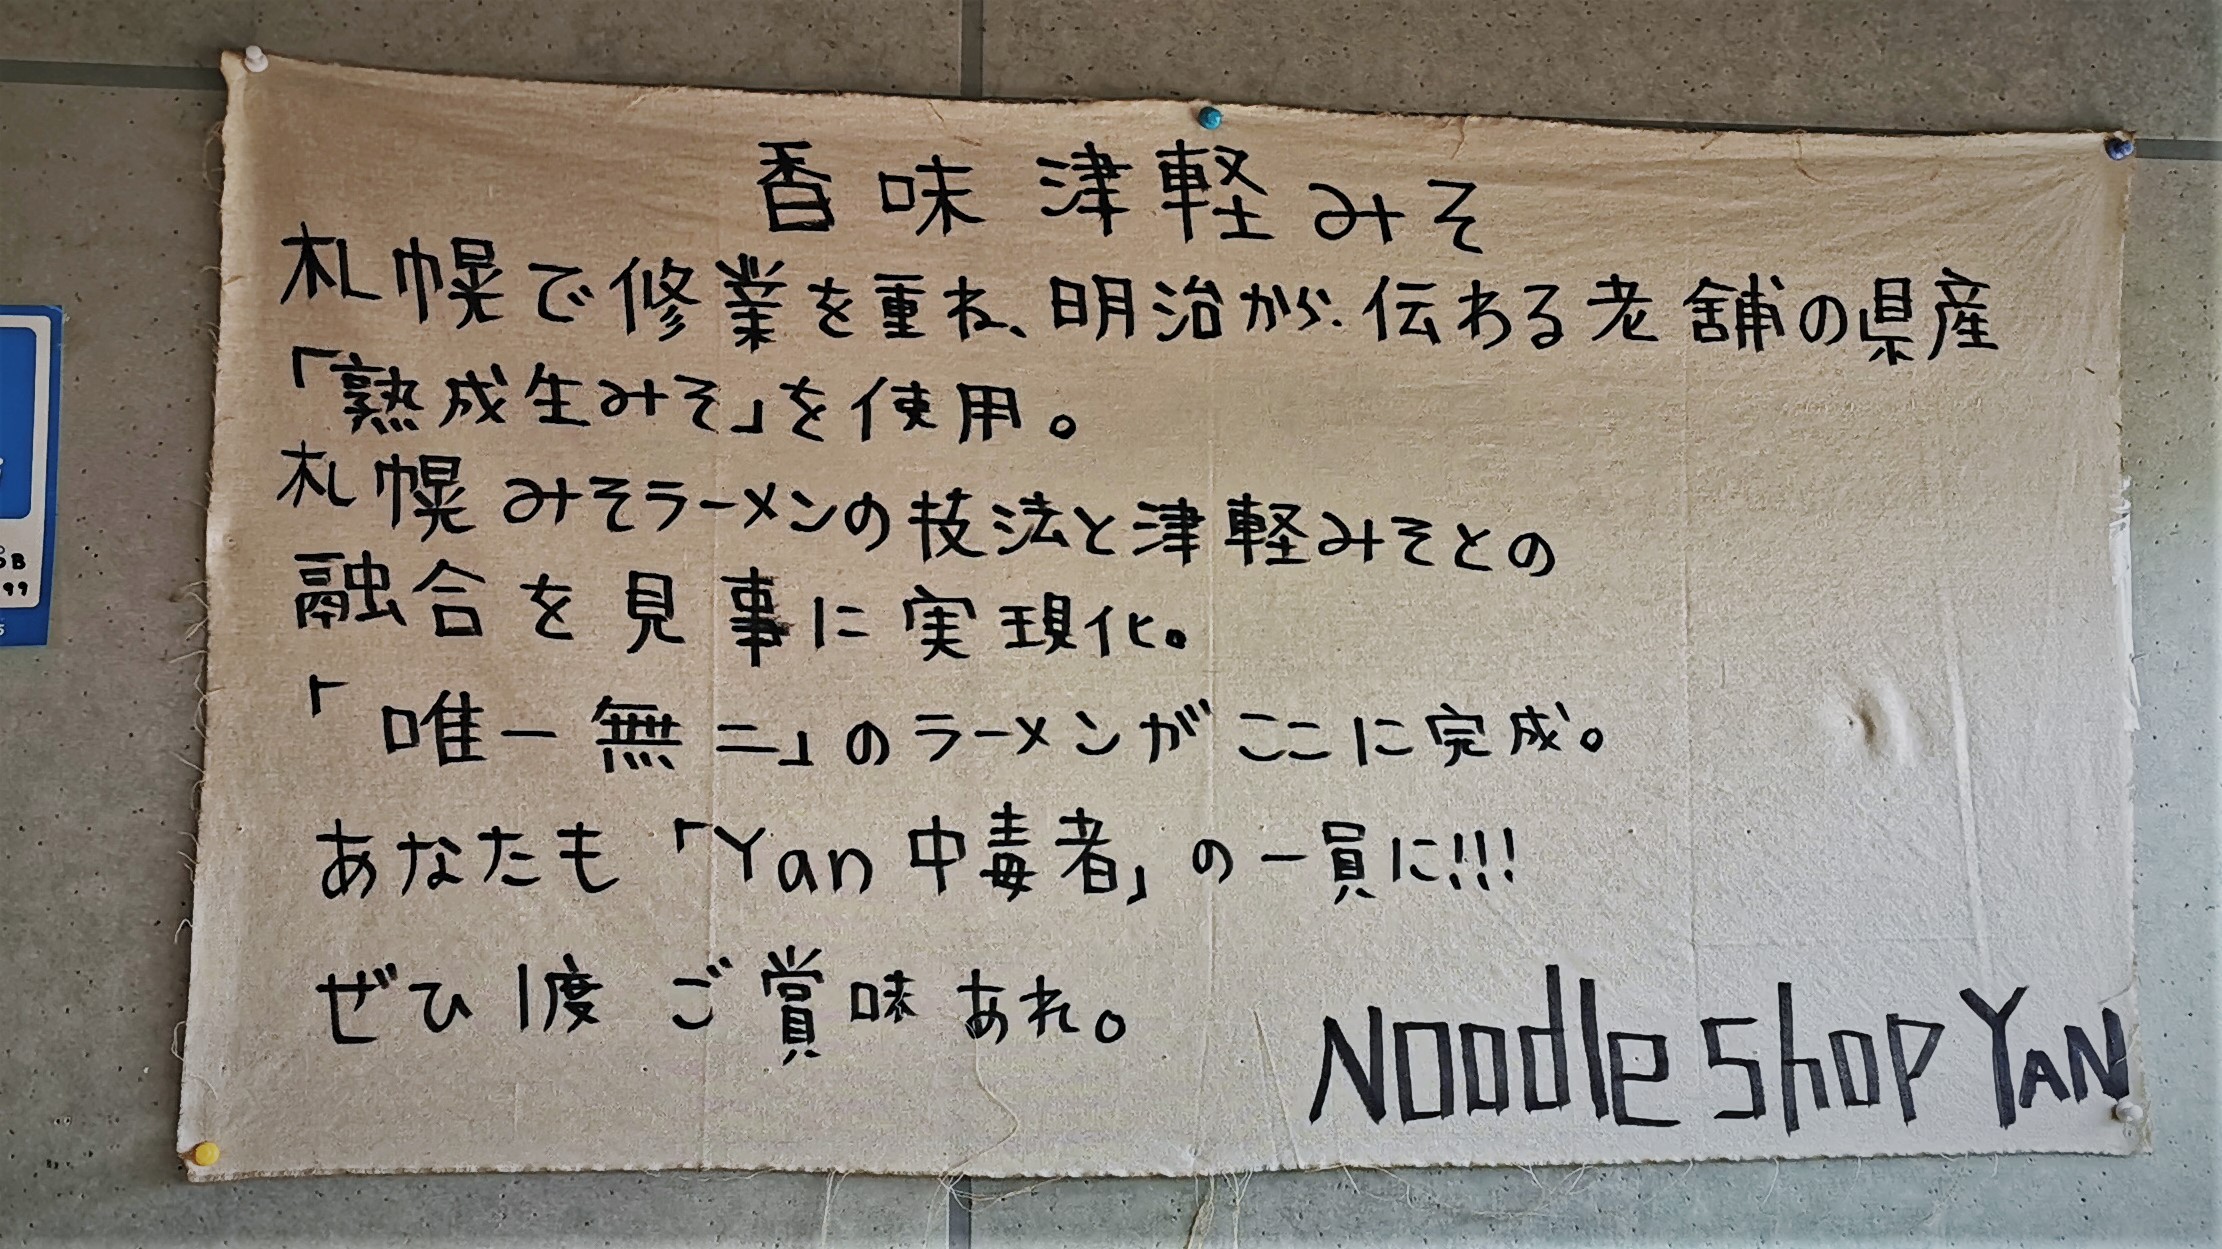 香味津軽みそ
札幌で修業を重ね、明治から伝わる老舗の県産
「熟成生みそ」を使用。
札幌みそラーメンの技法と津軽みそとの
融合を見事に実現化。
「唯一無二」のラーメンがここに完成。
あなたも「Yan中毒者」の一員に!!!
ぜひ1度ご賞味あれ。
Noodle Shop YAN